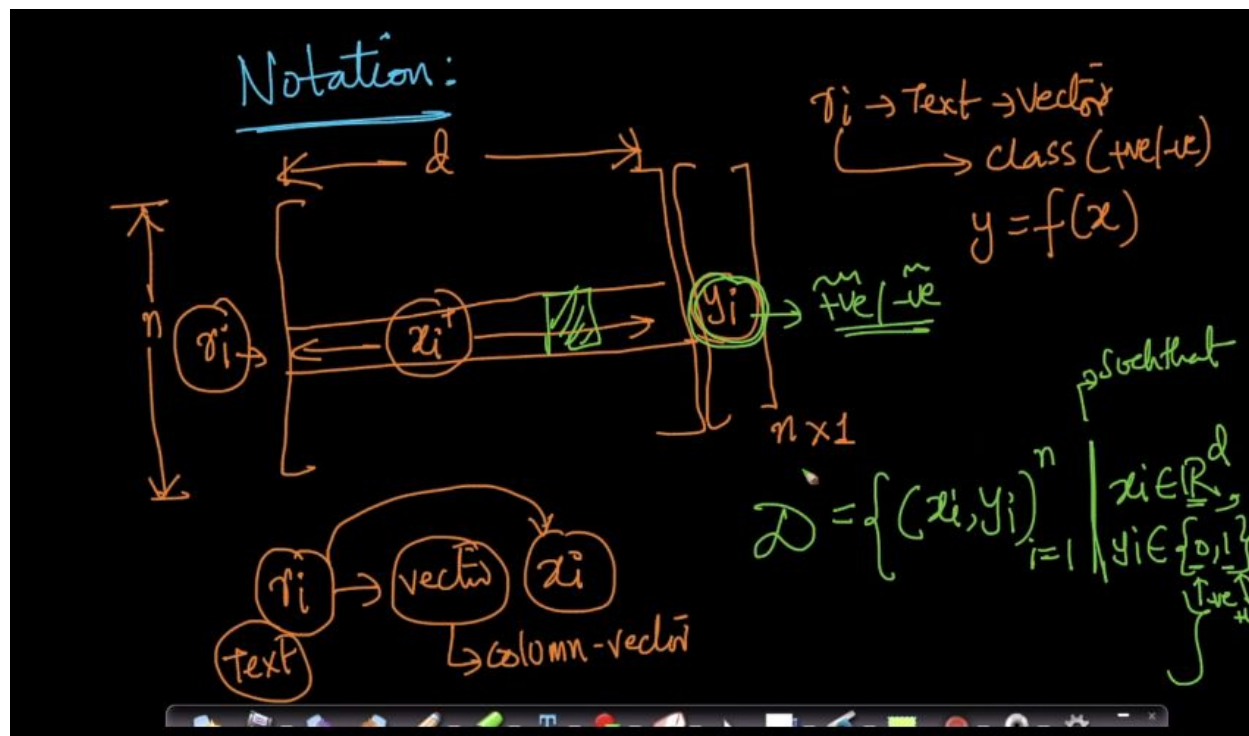 Notation:
ri → Text → vector
class (+ve/-ve)
y = f(x)
d
n
ri →
xiᵀ
yi → +ve/-ve
n×1
such that
D = {(xi, yi)ⁿᵢ₌₁ | xi ∈ ℝᵈ,
yi ∈ {0,1}
-ve
ri → vector xi
Text
column-vector